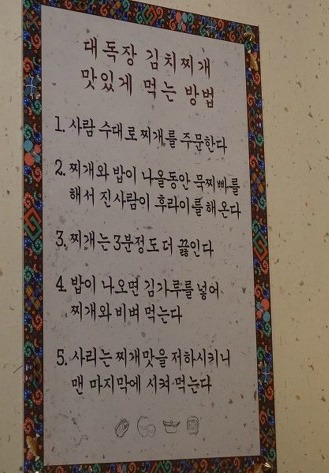 대독장 김치찌개
맛있게 먹는 방법
1. 사람 수대로 찌개를 주문한다
2. 찌개와 밥이 나올동안 묵찌빠를
해서 진사람이 후라이를 해온다
3. 찌개는 3분정도 더 끓인다
4. 밥이 나오면 김가루를 넣어
찌개와 비벼 먹는다
5. 사리는 찌개맛을 저하시키니
맨 마지막에 시켜 먹는다